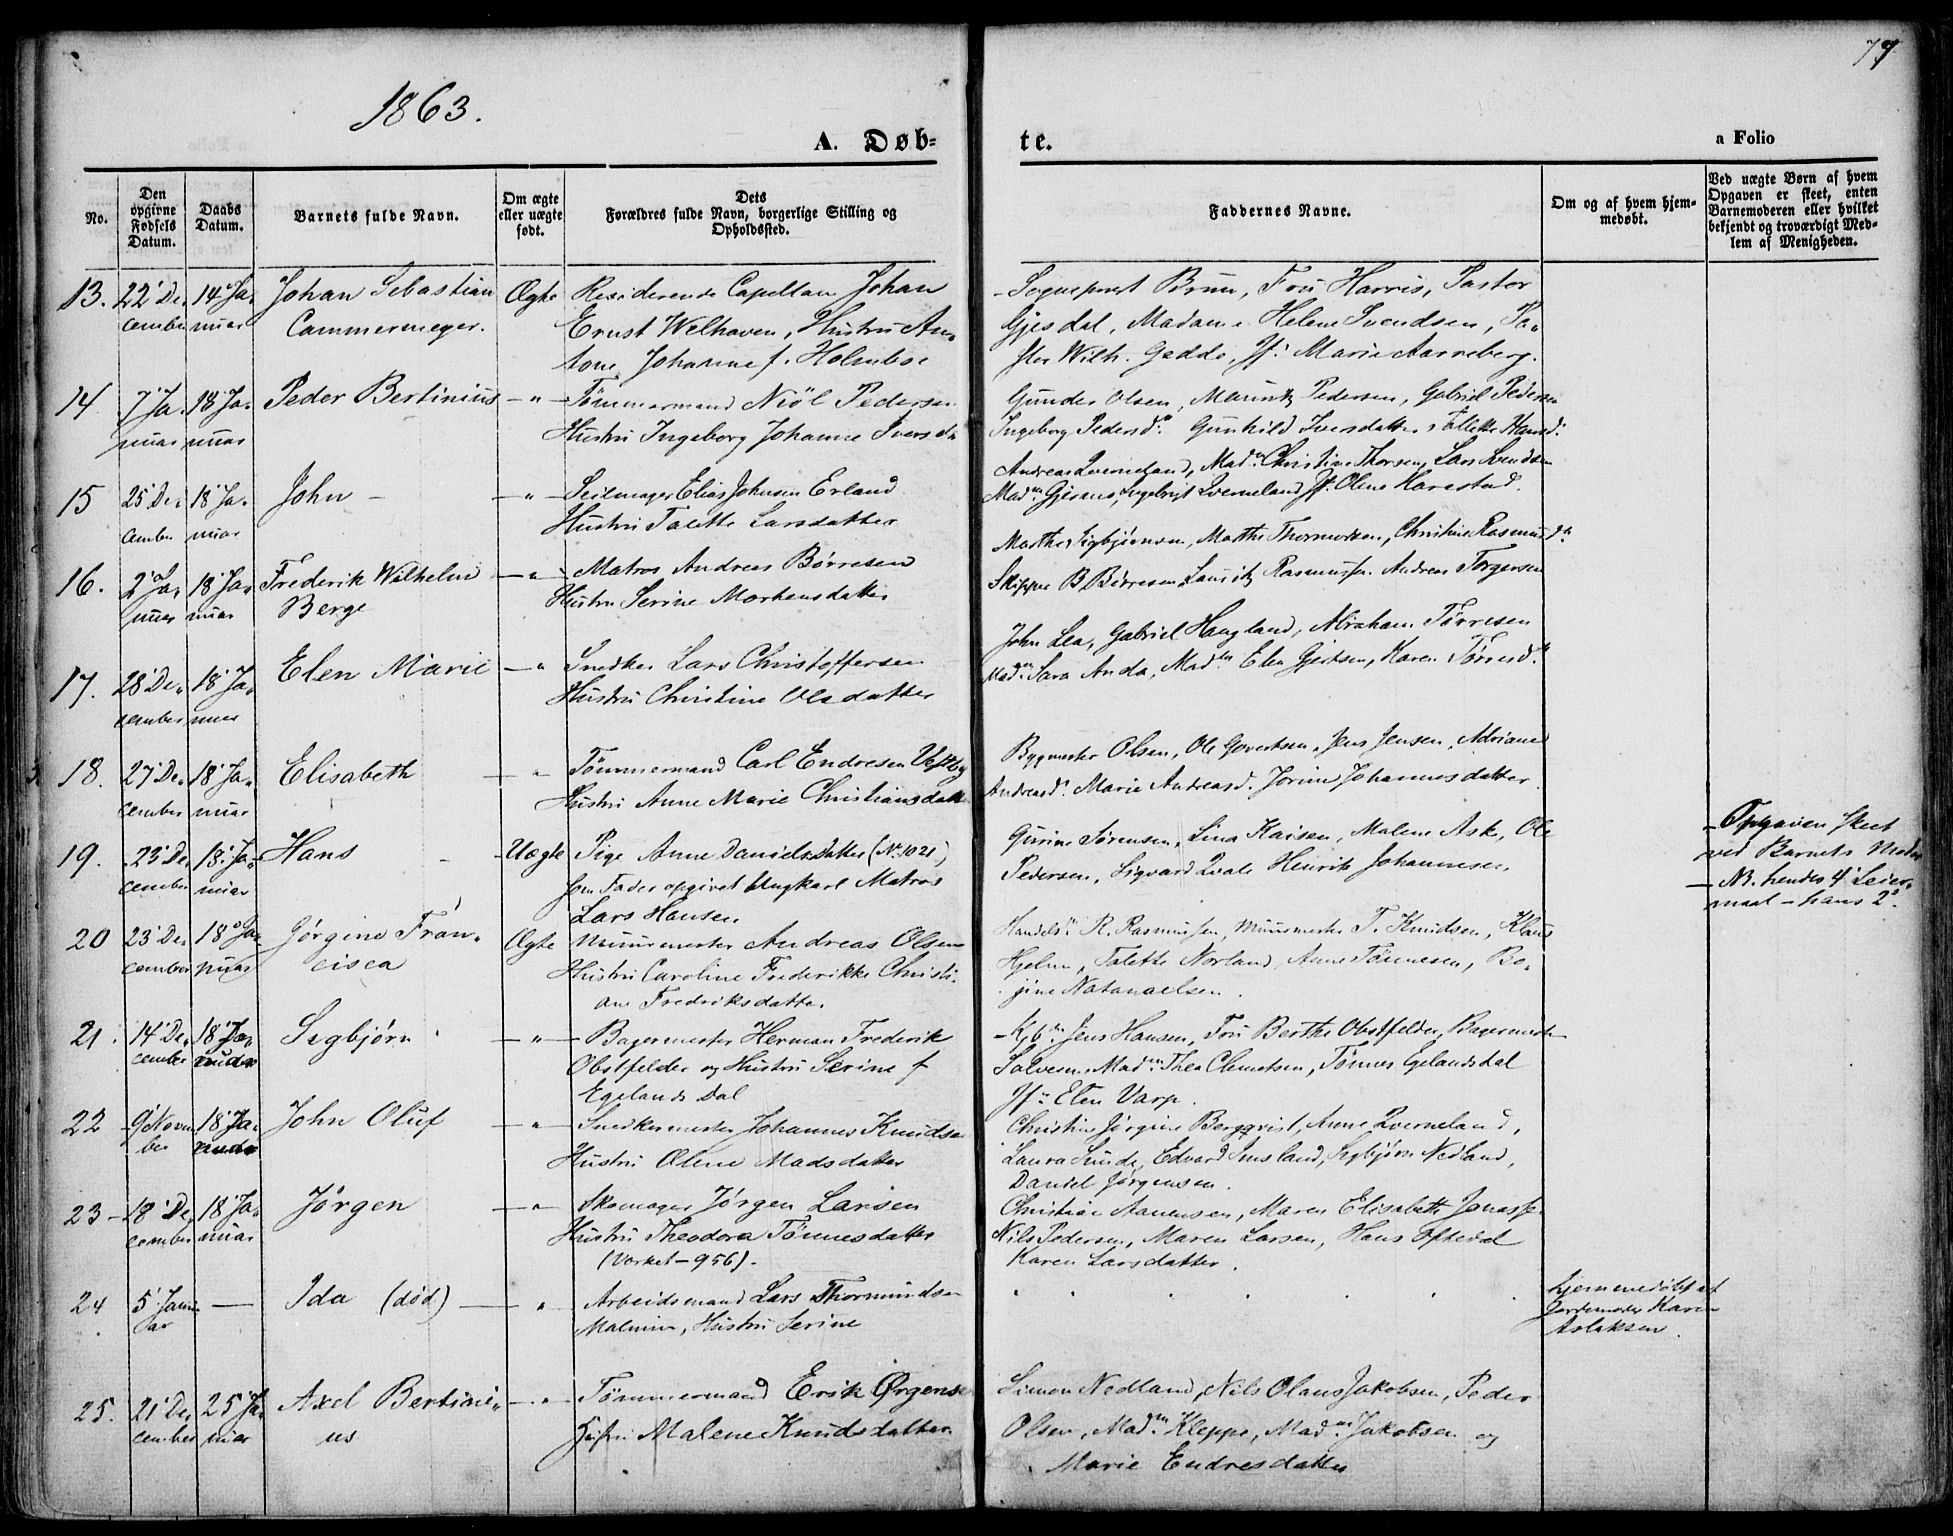 77
1863.
A. Døb-
te.
a Folio
No.
Den opgivne Fødsels Datum.
Daabs Datum.
Barnets fulde Navn.
Om ægte eller uægte født.
Dets Forældres fulde Navn, borgerlige Stilling og Opholdssted.
Faddernes Navne.
Om og af hvem hjemmedøbt.
Ved uægte Børn af hvem Opgaven er skeet, enten Barnemoderen eller hvilket bekjendt og troværdigt Medlem af Menigheden.
13. 22' De- 14' Ja- Johan Sebastian Ægte Residerende Capellan Johan
cember nuar Cammermeyer. Ernst Welhaven, Hustru An-
tone Johanne f. Holmboe
Sogneprest Brun, Fru Harris, Pastor
Gjesdal, Madam Helene Svendsen, Pa-
stor Wilh. Gedde, Jf: Marie Aarreberg.
14 7' Ja- 18' Ja- Peder Bertinius -"- Tømmermand Niöl Pedersen
nuar nuar Hustru Ingeborg Johanne Iversd
Gunder Olsen, Pedersen, Gabriel Pedersen
Ingeborg Pedersd: Gunhild Iversdatter, Tallette Hansd:
15 25' De- 18' Ja- John - -"- Seilmager Elias Johnsen Erland
cember nuar Hustru Talette Larsdatter
Andreas Qverneland, Mad: Christine Thorsen, Lars Svendsen
Mad: Ingebrigt Qverneland Jf: Oline Harestad.
16. 2' Ja- 18' Ja- Frederik Wilhelm -"- Matros Andreas Børresen
nuar nuar Berge Hustru Serine Mortensdatter
Marthe Sigbjørnsen, Marthe Thormodsen, Christine Rasmusd:
Skipper B Børresen, Lauritz Rasmussen Andreas Torgersen
17. 28' De- 18' Ja- Elen Marie -" Snedker Lars Christoffersen
cember nuar Hustru Christine Olsdatter
John Lea, Gabriel Haugland, Abraham Tørresen
Mad: Sara Anda, Mad: Elen Gjertsen, Karen Tørresd:
18. 27' De- 18' Ja- Elisabeth -"- Tømmermand Carl Endresen Vestbø
cember nuar Hustru Anne Marie Christiansdatt
Bygmester Olsen, Ole Govertsen, Jens Jensen, Adriane
Andreasd: Marie Andreasd. Jorine Johannesdatter.
19. 23' De- 18' Ja- Hans - Uægte Pige Anne Danielsdatter (No 1021)
cember nuar som Fader opgivet Ungkarl Matros
Lars Hansen
Gurine Sørensen, Lina Kaisen, Malene Ask, Ole
Pedersen, Sigvard Qvale Henrik Johannesen.
Opgaven skeet
ved Barnets Moder
- NB. hendes 4' Leier-
maal - hans 2'.
20 23' De- 18' Ja- Jørgine Fran- Ægte Muurmester Andreas Olsen
cember nuar cisca Hustru Caroline Frederikke Christi-
ane Fredriksdatter.
Handelsm R. Rasmussen, Muurmester T. Knudsen, Klaus
Hjelm, Talette Norland, Anne Tønnesen, Bo-
jine Natanaelsen.
21. 14' De- 18' Ja- Sigbjørn -"- Bagermester Herman Frederik
cember nuar Obstfelder og Hustru Serine f
Egelands Dal
- Kjbm: Jens Hansen, Fru Berthe Obstfelder, Bagermester
Salvesen, Mad: Thea Clemetsen, Tønnes Egelandsdal
Jf: Elen Varp.
22 9' Novem 18' Ja- John Oluf -"- Snedkermester Johannes Knudsen
ber nuar Hustru Olene Madsdatter
Christine Jørgine Bergqvist, Anne Qverneland,
Laura Sunde, Edvard Imsland, Sigbjørn Nedland,
Daniel Jørgensen.
23 - 18' De- 18' Ja- Jørgen -"- Skomager Jørgen Larsen
cember nuar Hustru Theodora Tønnesdatter
(Værket - 956).
Christine Aanensen, Maren Elisabeth Jonass.
Nils Pedersen, Maren Larsen, Hans Oftedal
Karen Larsdatter.
24 5' Janu- - Ida (død) -"- Arbeidsmand Lars Thormundsen
ar Malmin, Hustru Serine
Hjemmedøbt af
Jordemoder Karen
Aslaksen.
25. 21' De- 25' Ja- Axel Bertini- -"- Tømmermand Erik Ørgensen
cember nuar us Hustru Malene Knudsdatter
Simon Nedland, Nils Olaus Jakobsen, Peder
Olsen, Mad: Kleppe, Mad: Jakobsen og
Marie Endresdatter